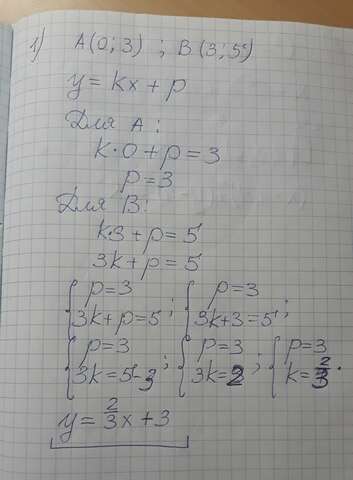 1) A(0;3) ; B(3;5)
y=kx+p
Для A:
k·0+p=3
p=3
Для B:
k·3+p=5
3k+p=5
{p=3 ; {p=3 ;
3k+p=5 3k+3=5
{p=3 ; {p=3 ; {p=3 .
3k=5-3 3k=2 k=2/3
y=2/3x+3